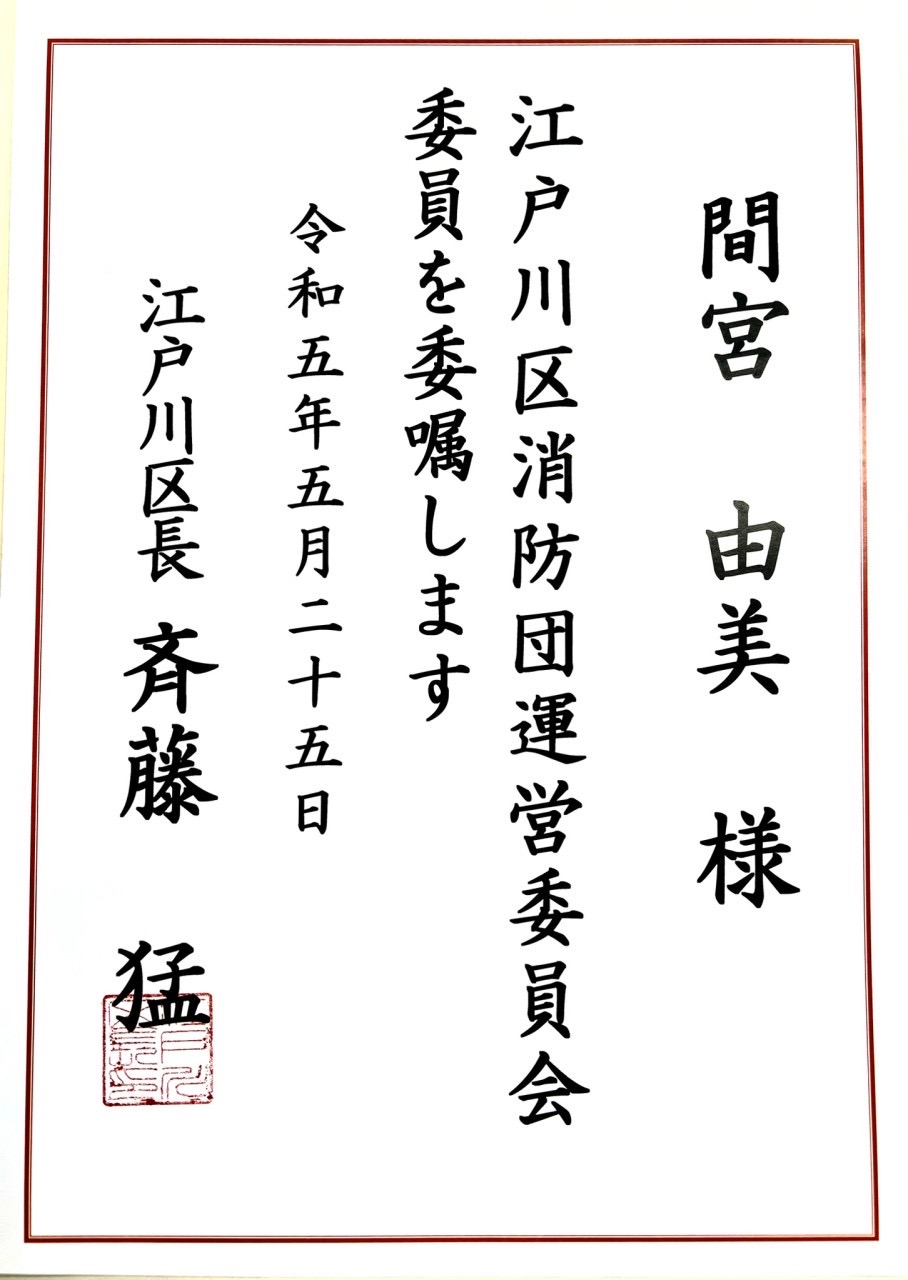 間宮 由美 様
江戸川区消防団運営委員会
委員を委嘱します
令和五年五月二十五日
江戸川区長 斉藤 猛